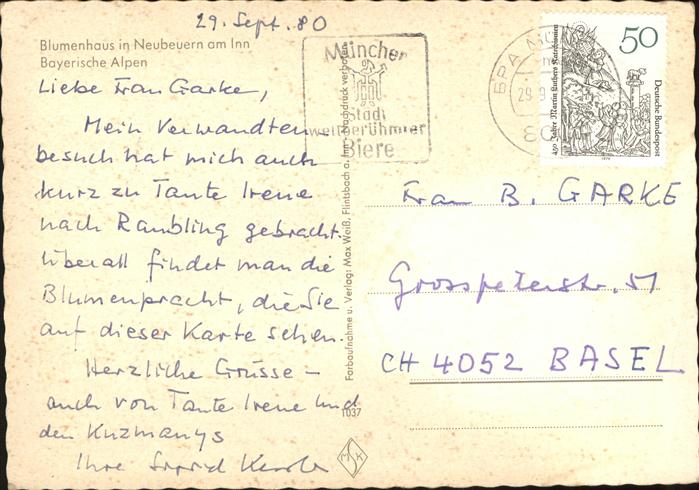 29. Sept. 80
Blumenhaus in Neubeuern am Inn
Bayerische Alpen
Liebe Frau Garke,
Mein Verwandten
besuch hat mich auch
kurz zu Tante Irene
nach Raubling gebracht.
Überall findet man die
Blumenpracht, die Sie
auf dieser Karte sehen.
Herzliche Grüsse –
auch von Tante Irene und
den Kuzmanys
Ihre
Farbaufnahme u. Verlag: Max Weiß, Flintsbach a. Inn · Nachdruck verboten
1037
München
Stadt
weltberühmter
Biere
BPA MÜ
29.9
80
50
Deutsche Bundespost
450 Jahre Martin Luthers Katechismen
1979
Frau B. GARKE
Grosspeterstr. 51
CH 4052 BASEL
MSK